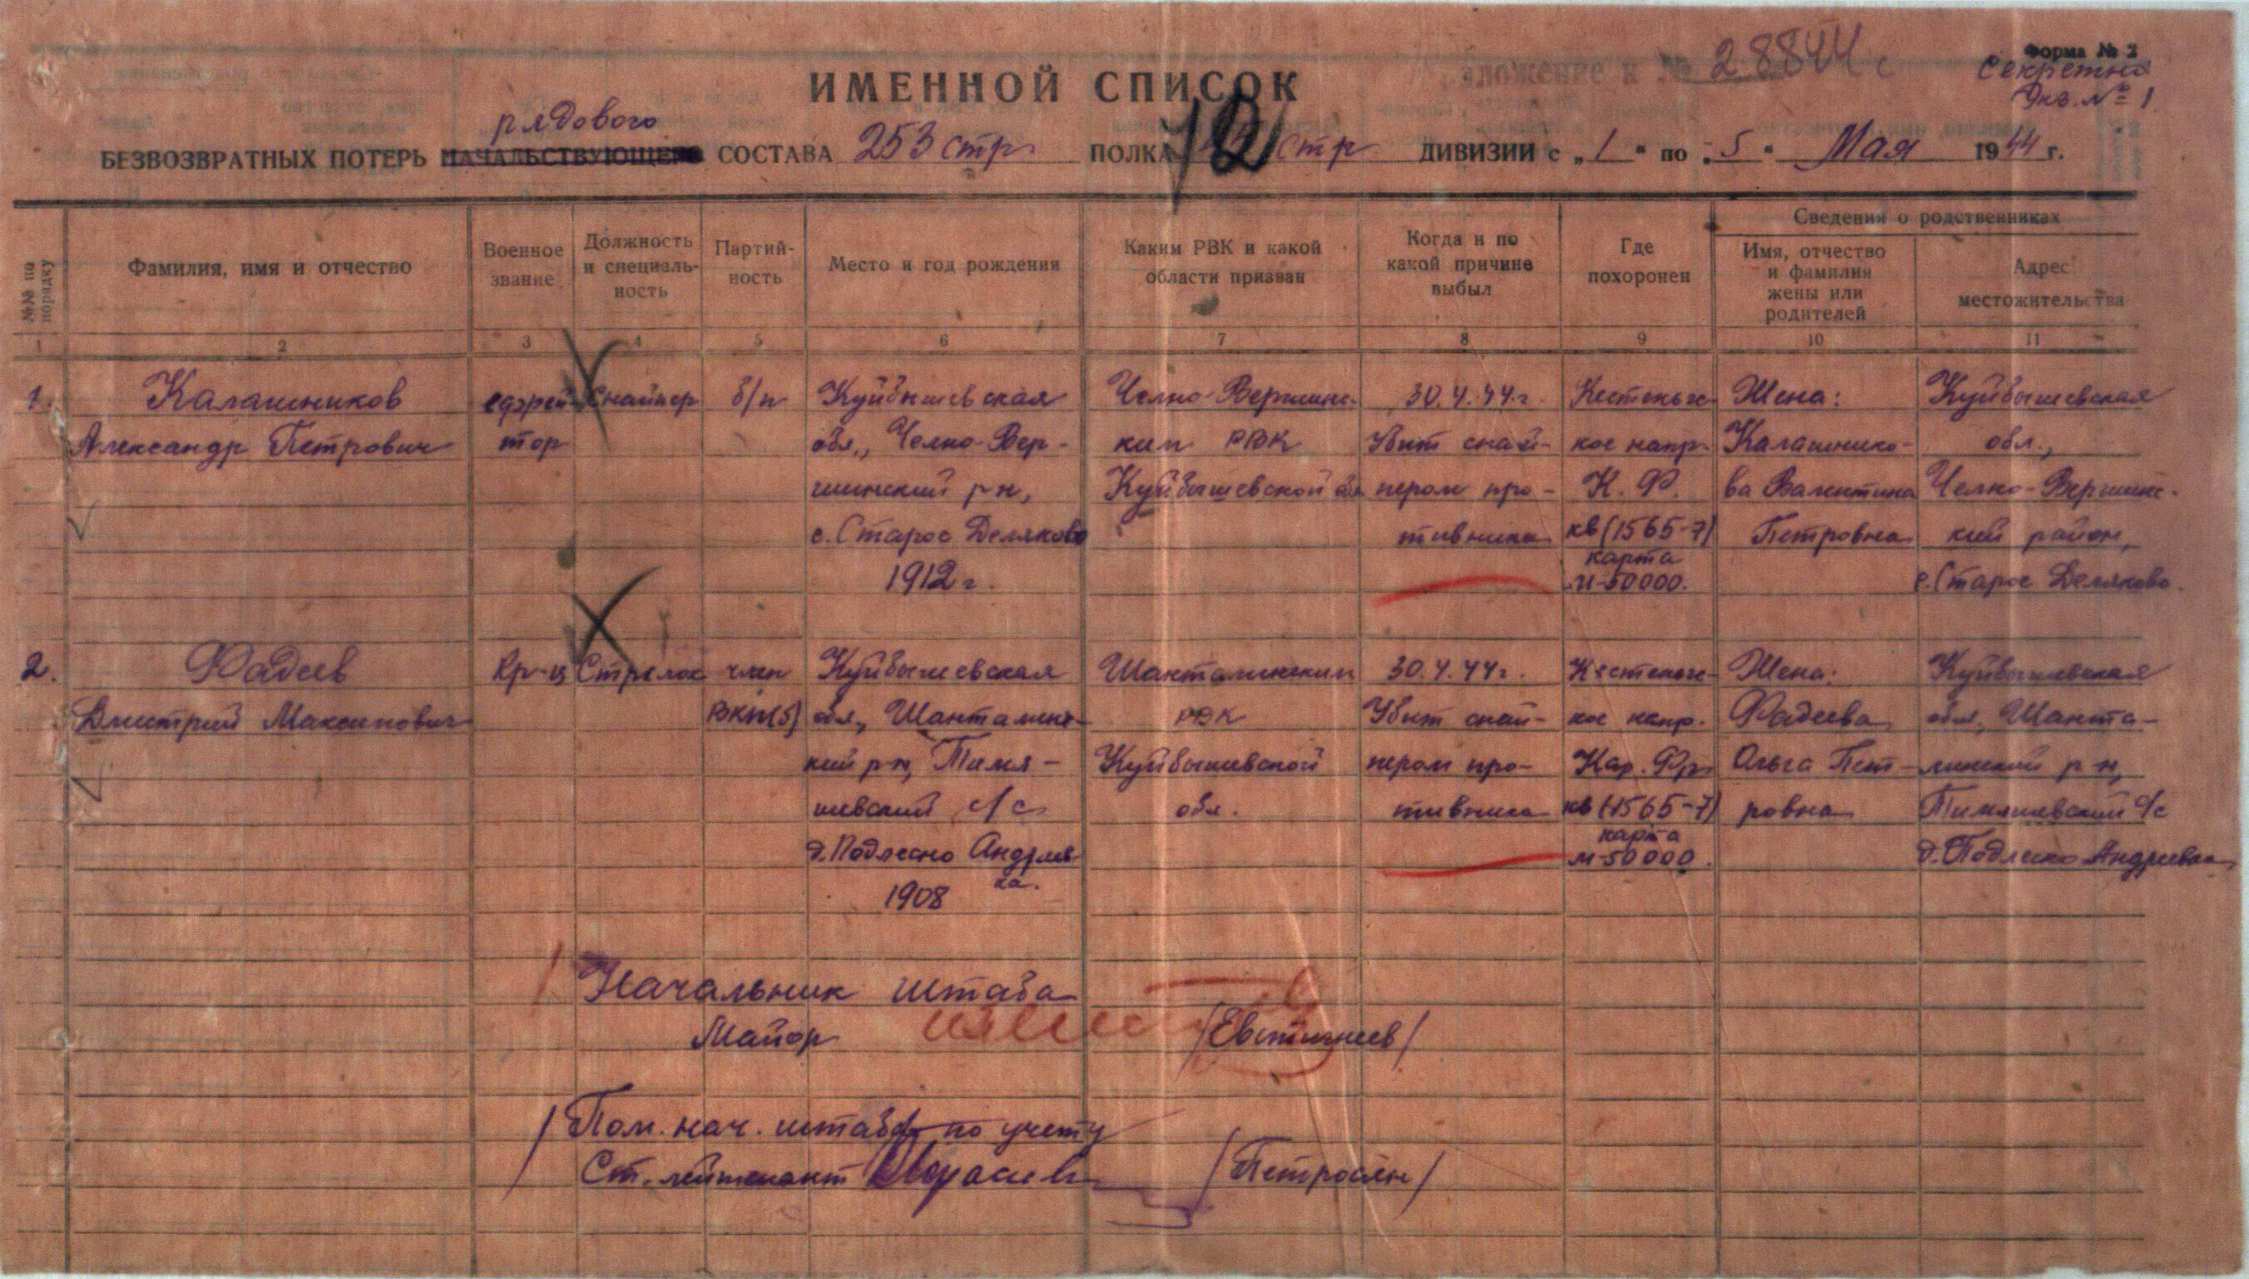 Форма № 2
28844с
Секретно
Экз. № 1
ИМЕННОЙ СПИСОК
рядового
БЕЗВОЗВРАТНЫХ ПОТЕРЬ НАЧАЛЬСТВУЮЩЕГО СОСТАВА 253 стр ПОЛКА стр ДИВИЗИИ с „1“ по „5“ Мая 1944 г.
№№ по порядку
Фамилия, имя и отчество
Военное звание
Должность и специальность
Партийность
Место и год рождения
Каким РВК и какой области призван
Когда и по какой причине выбыл
Где похоронен
Сведения о родственниках
Имя, отчество и фамилия жены или родителей
Адрес местожительства
1 2 3 4 5 6 7 8 9 10 11
1. Калашников ефрей- Снайпер б/п Куйбышевская Челно-Вершинс- 30.4.44 г. Кестеньгс- Жена: Куйбышевская
Александр Петрович тор обл., Челно-Вер- ким РВК Убит снай- кое напр. Калашнико- обл.,
шинский р-н, Куйбышевской обл пером про- К. Ф. ва Валентина Челно-Вершинс-
с. Старое Деляково тивника кв (1565-7) Петровна кий район,
1912 г. карта с. Старое Деляково.
М-50000.
2. Фадеев Кр-ц Стрелок член Куйбышевская Шанталинским 30.4.44 г. Кестеньгс- Жена: Куйбышевская
Дмитрий Максимович ВКП(б) обл., Шанталинс- РВК Убит снай- кое напр. Фадеева обл., Шанта-
кий р-н, Тимя- Куйбышевской пером про- Кар. Фр. Ольга Пет- линский р-н,
шевский с/с обл. тивника кв (1565-7) ровна Тимяшевский с/с
д. Подлесно Андреев карта д. Подлесно Андреевка
ка. М-50000.
1908
Начальник штаба
Майор /Евстигнеев/
Пом. нач. штаба по учету
Ст. лейтенант /Петросян/